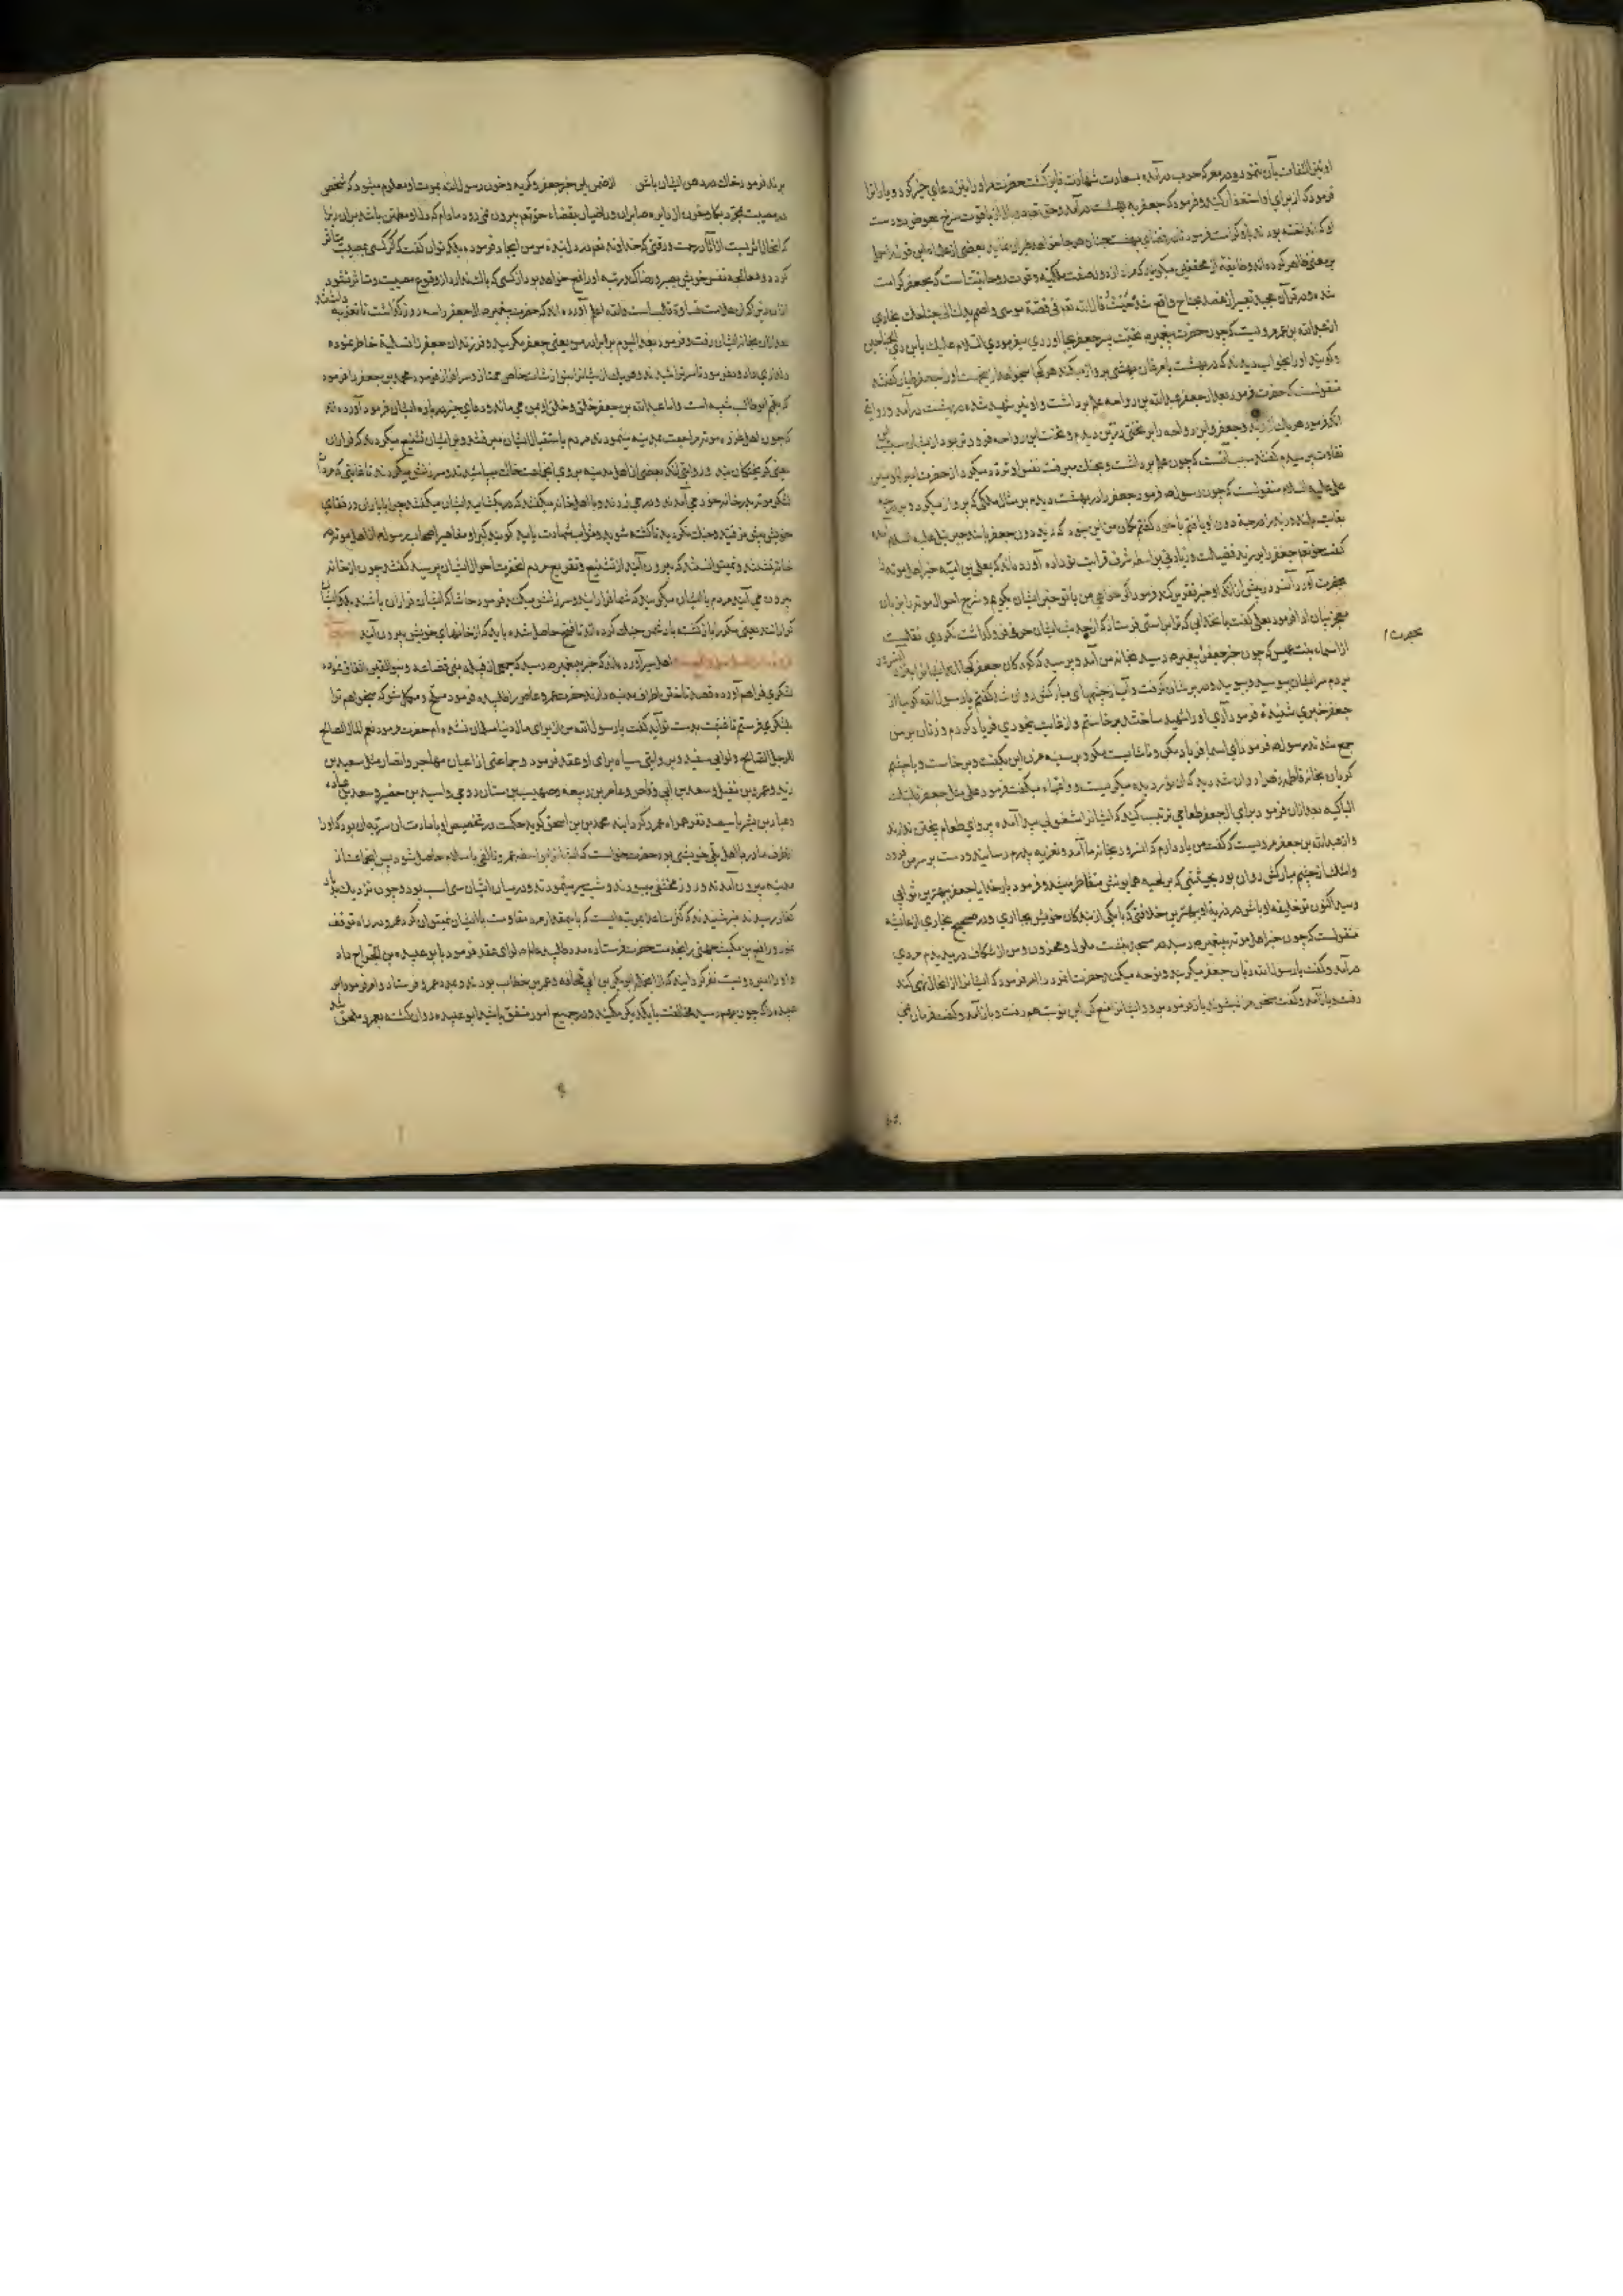 او نیز التفات بآن ننمود و در معرکه حرب درآمد و بسعادت شهادت فایز کشت حضرت مر او را نیز دعای خیر کرد و یارانرا
فرمود که از برای او استغفار کنید و فرمود که جعفر به بهشت درآمد و حق تعالی دو بال از یاقوت سرخ بعوض دو دست
او که انداخته بودند باو کرامت فرمود تا در فضای بهشت چنان هر جا خواهد طیران نماید بعضی از علما این قول را حمل
بر معنی ظاهر کرده اند و طایفۀ از محققین میکویند که مراد از دو بال صفت ملکیه و قوت روحانیت است که بجعفر کرامت
شده و در قرآن مجید تعبیر از عضد بجناح واقع شده حیث قال الله تعالی فی قصة موسی واضمم یدک الی جناحک بخاری
از عبدالله بن عمر روایت کرده چون حضرت پیغمبر تحیت پسر جعفر بجا آوردی میفرمودی السلام علیک یا بن ذی الجناحین
و کویند او را بخواب دیدند که در بهشت با مرغان بهشتی پرواز میکند هر کجا میخواهد از ینجهت او را جعفر طیار کفتند
منقولست که حضرت فرمود بعد از جعفر عبدالله بن رواحه علم برداشت و او نیز شهید شده در بهشت درآمد و روایت
آنکه فرمود هر یک از زید و جعفر و ابن رواحه را بر تختی زرین دیدم و تخت ابن رواحه فروتر بود از ایشان سبب این
تفاوت پرسیدم کفتند سبب آنست که چون علم برداشت و بجنک میرفت نفس او تردد میکرد از حضرت امیرالمومنین
علی علیه السلام منقولست که چون رسول فرمود جعفر را در بهشت دیدم بر مثال ملکی که پرواز میکرد و
بغایت بلند و زید را در مرتبۀ دون او یافتم با خود کفتم کمان من این نبود که زید دون جعفر باشد جبرئیل علیه السلام
کفت حق تعالی جعفر را بر زید فضیلت و زیادتی بواسطه شرف قرابت تو داده آورده اند که یعلی بن امیّه خبر اهل موته
بحضرت آورد آنسرور پیش از آنکه او خبر تقریر کند فرمود اکر خواهی من با تو خبر ایشان بکویم و شرح احوال موته را بزبان
معجز بیان ادا فرمود یعلی کفت بآن خدائی که ترا براستی فرستاد که از حدیث ایشان حرفی فرو کذاشت نکردی نقلست
بحضرت
از اسماء بنت عمیس که چون خبر جعفر به پیغمبر رسید بخانه من آمد و پرسید که کودکان جعفر کجااند ایشانرا نزد آنسرور
بردم سر ایشان بوسید و ببویید و در بر ایشان کرفت و آب از چشمهای مبارکش روان شد کفتم یا رسول الله کویا از
جعفر خبری شنیده فرمود آری او را شهید ساختند برخاستم و از غایت بیخودی فریاد کردم و زنان بر من
جمع شدند رسول فرمود ای اسما فریاد مکن و ناشایست مکو و بر سینه مزن این بکفت و برخاست و با چشم
کریان بخانه فاطمه زهرا روان شد دید که آن نور دیده میکریست و واعمّاه میکفت فرمود علی مثل جعفر فلتبک
الباکیه بعد از آن فرمود برای آل جعفر طعامی ترتیب کنید که ایشانرا مشغولی پیدا آمده پروای طعام پختن ندارند
و از عبدالله بن جعفر مرویست که کفت من یاد دارم که آنسرور بخانه ما آمد و تعزیه پدرم رسانید و دست بر سر من فرود
و اشک از چشم مبارکش روان بود بحیثیتی که بر لحیه همایونش متقاطر میشد و فرمود بار خدایا جعفر بهترین ثوابی
رسید اکنون تو خلیفه او باش در ذریۀ او بهترین خلافتی که بایکی از بندکان خویش بجا آری و در صحیح بخاری از عایشه
منقولست که چون خبر اهل موته به پیغمبر رسید در مسجد بنشست ملول و محزون و من از شکاف در دیدم مردی
درآمد و کفت یا رسول الله زنان جعفر میکریند و نوحه میکنند حضرت آنمرد را امر فرمود که ایشانرا از آنحال نهی کند
رفت و باز آمد و کفت سخن مرا نمیشنوند باز فرمود برو و ایشانرا منع کن این نوبت هم رفت و باز آمد و کفت فرمان نمی
برند فرمود خاک در دهن ایشان پاش از ضمن این خبر جعفر و کریه و حزن رسول الله بموت او معلوم میشود که شخص
در مصیبت بمجرد بکا و حزن از دایره صابران و راضیان بقضاء حق تعالی بیرون نمی رود مادام که دل او مطمئن باشد بران زیرا
که
کردد و معالجه نفس خویش بصبر و رضا کند رتبه او رفیع خواهد بود از کسی که باک ندارد از وقوع مصیبت و متاثر نشود
از آن زیرا که آن علامت قساوة قلب است والله اعلم آورده اند که حضرت پیغمبر آل جعفر را سه روز کذاشت تا تعزیه داشتند
بعد از آن بخانه ایشان رفت و فرمود بعد الیوم بر برادر من یعنی جعفر مکریید و فرزندان جعفر را تسلیة خاطر نموده
دلداری داد و بفرمود تا سر تراشیدند و هر یک از ایشانرا بنوازشات خاص ممتاز و سرافراز فرمود محمد بن جعفر را فرمود
که بعّم ابوطالب شبیه است و اما عبدالله بن جعفر خلق و خلق او بمن می ماند و دعای خیر درباره ایشان فرمود آورده اند
که چون اهل غزوه موته مراجعت بمدینه مینمودند مردم باستقبال ایشان میرفتند و بر ایشان تشنیع میکردند که فراران
یعنی کریختکان میند و روایتی آنکه بعضی از اهل مدینه بر روی آنجماعت خاک میپاشیدند و سرزنش میکردند تا غایتی که مردان
لشکر موته بدر خانه خود می آمدند و در می زدند و با اهل خانه میکفتند که در بکشایید ایشان میکفتند چرا با یاران و رفقای
خویش پیش نرفتید و جنک نکردید تا کشته شوید و ثواب شهادت یابید کویند کبرا و مشاهیر اصحاب رسول از اهل موته در
خانه نشستند و نمیتوانستند که بیرون آیند از تشنیع و تقریع مردم آنحضرت احوال ایشان پرسید کفتند چون از خانه
بیرون می آیند مردم با ایشان میکویند که شما فرارانید و سرزنش میکنند فرمود حاشا که ایشان فراران باشند بلکه ایشان
کرارانند یعنی مکررا بازکشت بار دشمن جنک کرده اند تا فتح حاصل شده باید که از خانهای خویش بیرون آیند
اهل سیر آورده اند که خبر به پیغمبر رسید که جمعی از قبیله بنی قضاعه و بنو القین اتفاق نموده
لشکری فراهم آورده قصد تاختن باطراف مدینه دارند حضرت عمرو عاص را طلبیده فرمود مسلح و مکمل شو که میخواهم ترا
بلشکری فرستم تا غنیمت بدست تو آید کفت یا رسول الله من از برای مال دنیا مسلمان نشده ام حضرت فرمود نعم المال الصالح
للرجل الصالح و لوایی سفید و بروایتی سیاه برای او عقد فرمود و جماعتی از اعیان مهاجر و انصار مثل سعید بن
زید و عمرو بن نفیل و سعد بن ابی وقاص و عامر بن ربیعه و صهیب بن سنان رومی و اسید بن حضیر و سعد بن عباده
و عباد بن بشر با سیصد نفر همراه عمرو کردانید محمد بن اسحق کوید حکمت در تخصیص او بامارت آن سریه آن بود که او را
از طرف مادر با اهل بلی خویشی بود حضرت خواست که ایشانرا بواسطه عمرو تالفی باسلام حاصل شود پس آنجماعت از
مدینه بیرون آمدند و روز مختفی میبودند و شب سیر مینمودند و در میان ایشان سی اسب بود و چون نزدیک بدیار
کفار رسیدند خبر شنیدند که کثرت اعدا بمرتبه ایست که باین مقدار مردم مقاومت با ایشان نمیتوان کرد عمرو در راه توقف
نمود و رافع بن مکیث جهنی را بخدمت حضرت فرستاده مدد طلبید لوای عقد فرمود بابوعبیده بن الجراح داد
و او را امیر دویست نفر کردانید که از انجمله ابوبکر بن ابی قحافه و عمر بن خطاب بودند و بمدد عمرو فرستاد و امر فرمود ابو
عبیده را که چون بهم رسید مخالفت با یکدیکر مکنید و در جمیع امور متفق باشید ابوعبیده روان کشته بعمرو ملحق شد